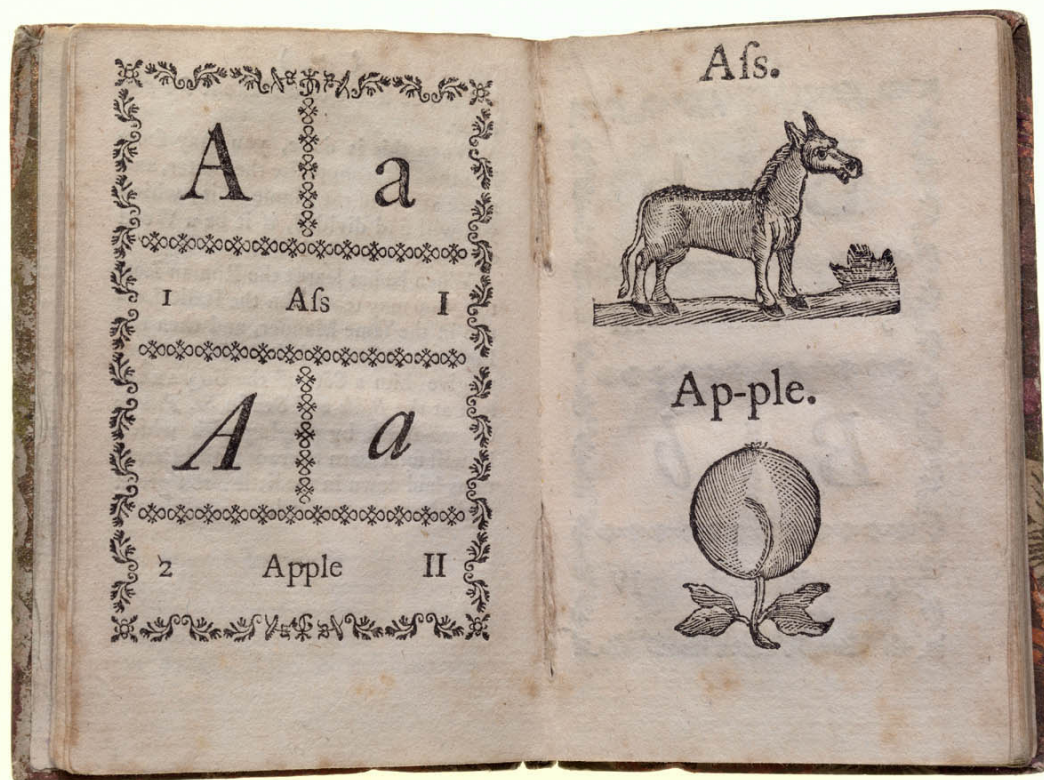 A a
1 Aſs I
A a
2 Apple II
Aſs.
Ap-ple.